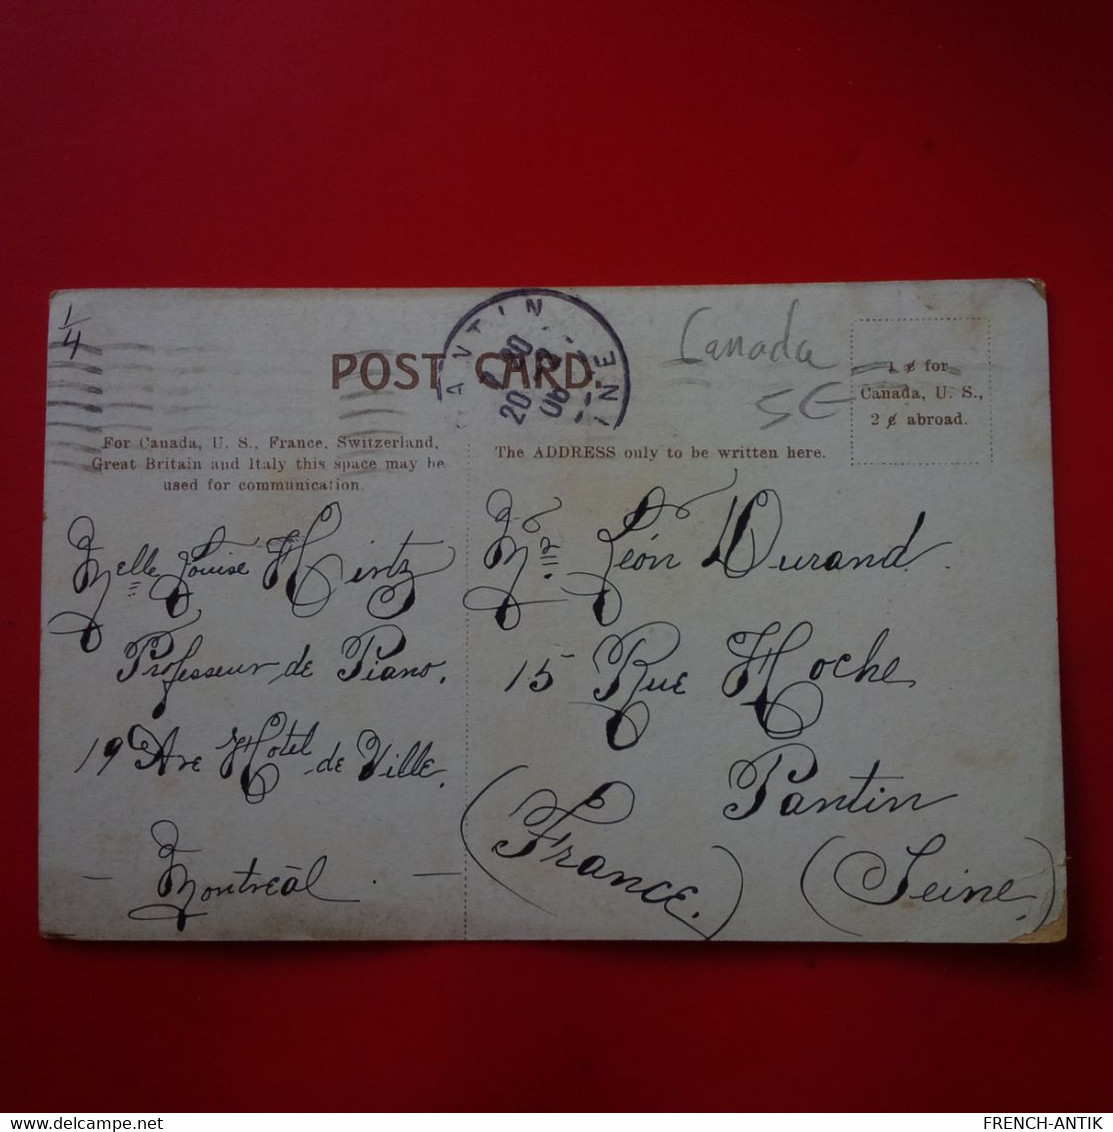 1/4
POST CARD.
Canada
5E
1 ¢ for
Canada, U. S.,
2 ¢ abroad.
For Canada, U. S., France, Switzerland,
Great Britain and Italy this space may be
used for communication.
The ADDRESS only to be written here.
Melle Louise Hintz
Professeur de Piano.
19 Ave Hotel de Ville.
Montreàl
Mr. Léon Durand
15 Rue Hoche
Pantin
(Seine.)
(France.)
FRENCH-ANTIK